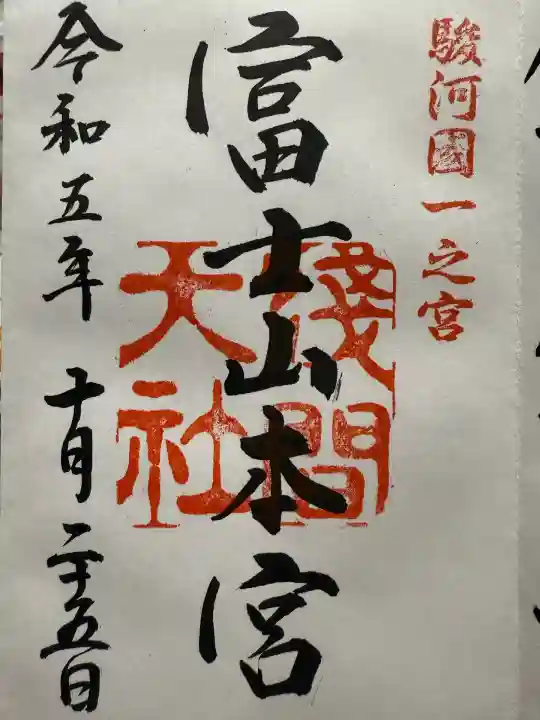 駿河國一之宮
富士山本宮
淺間
大社
令和五年 十月二十五日